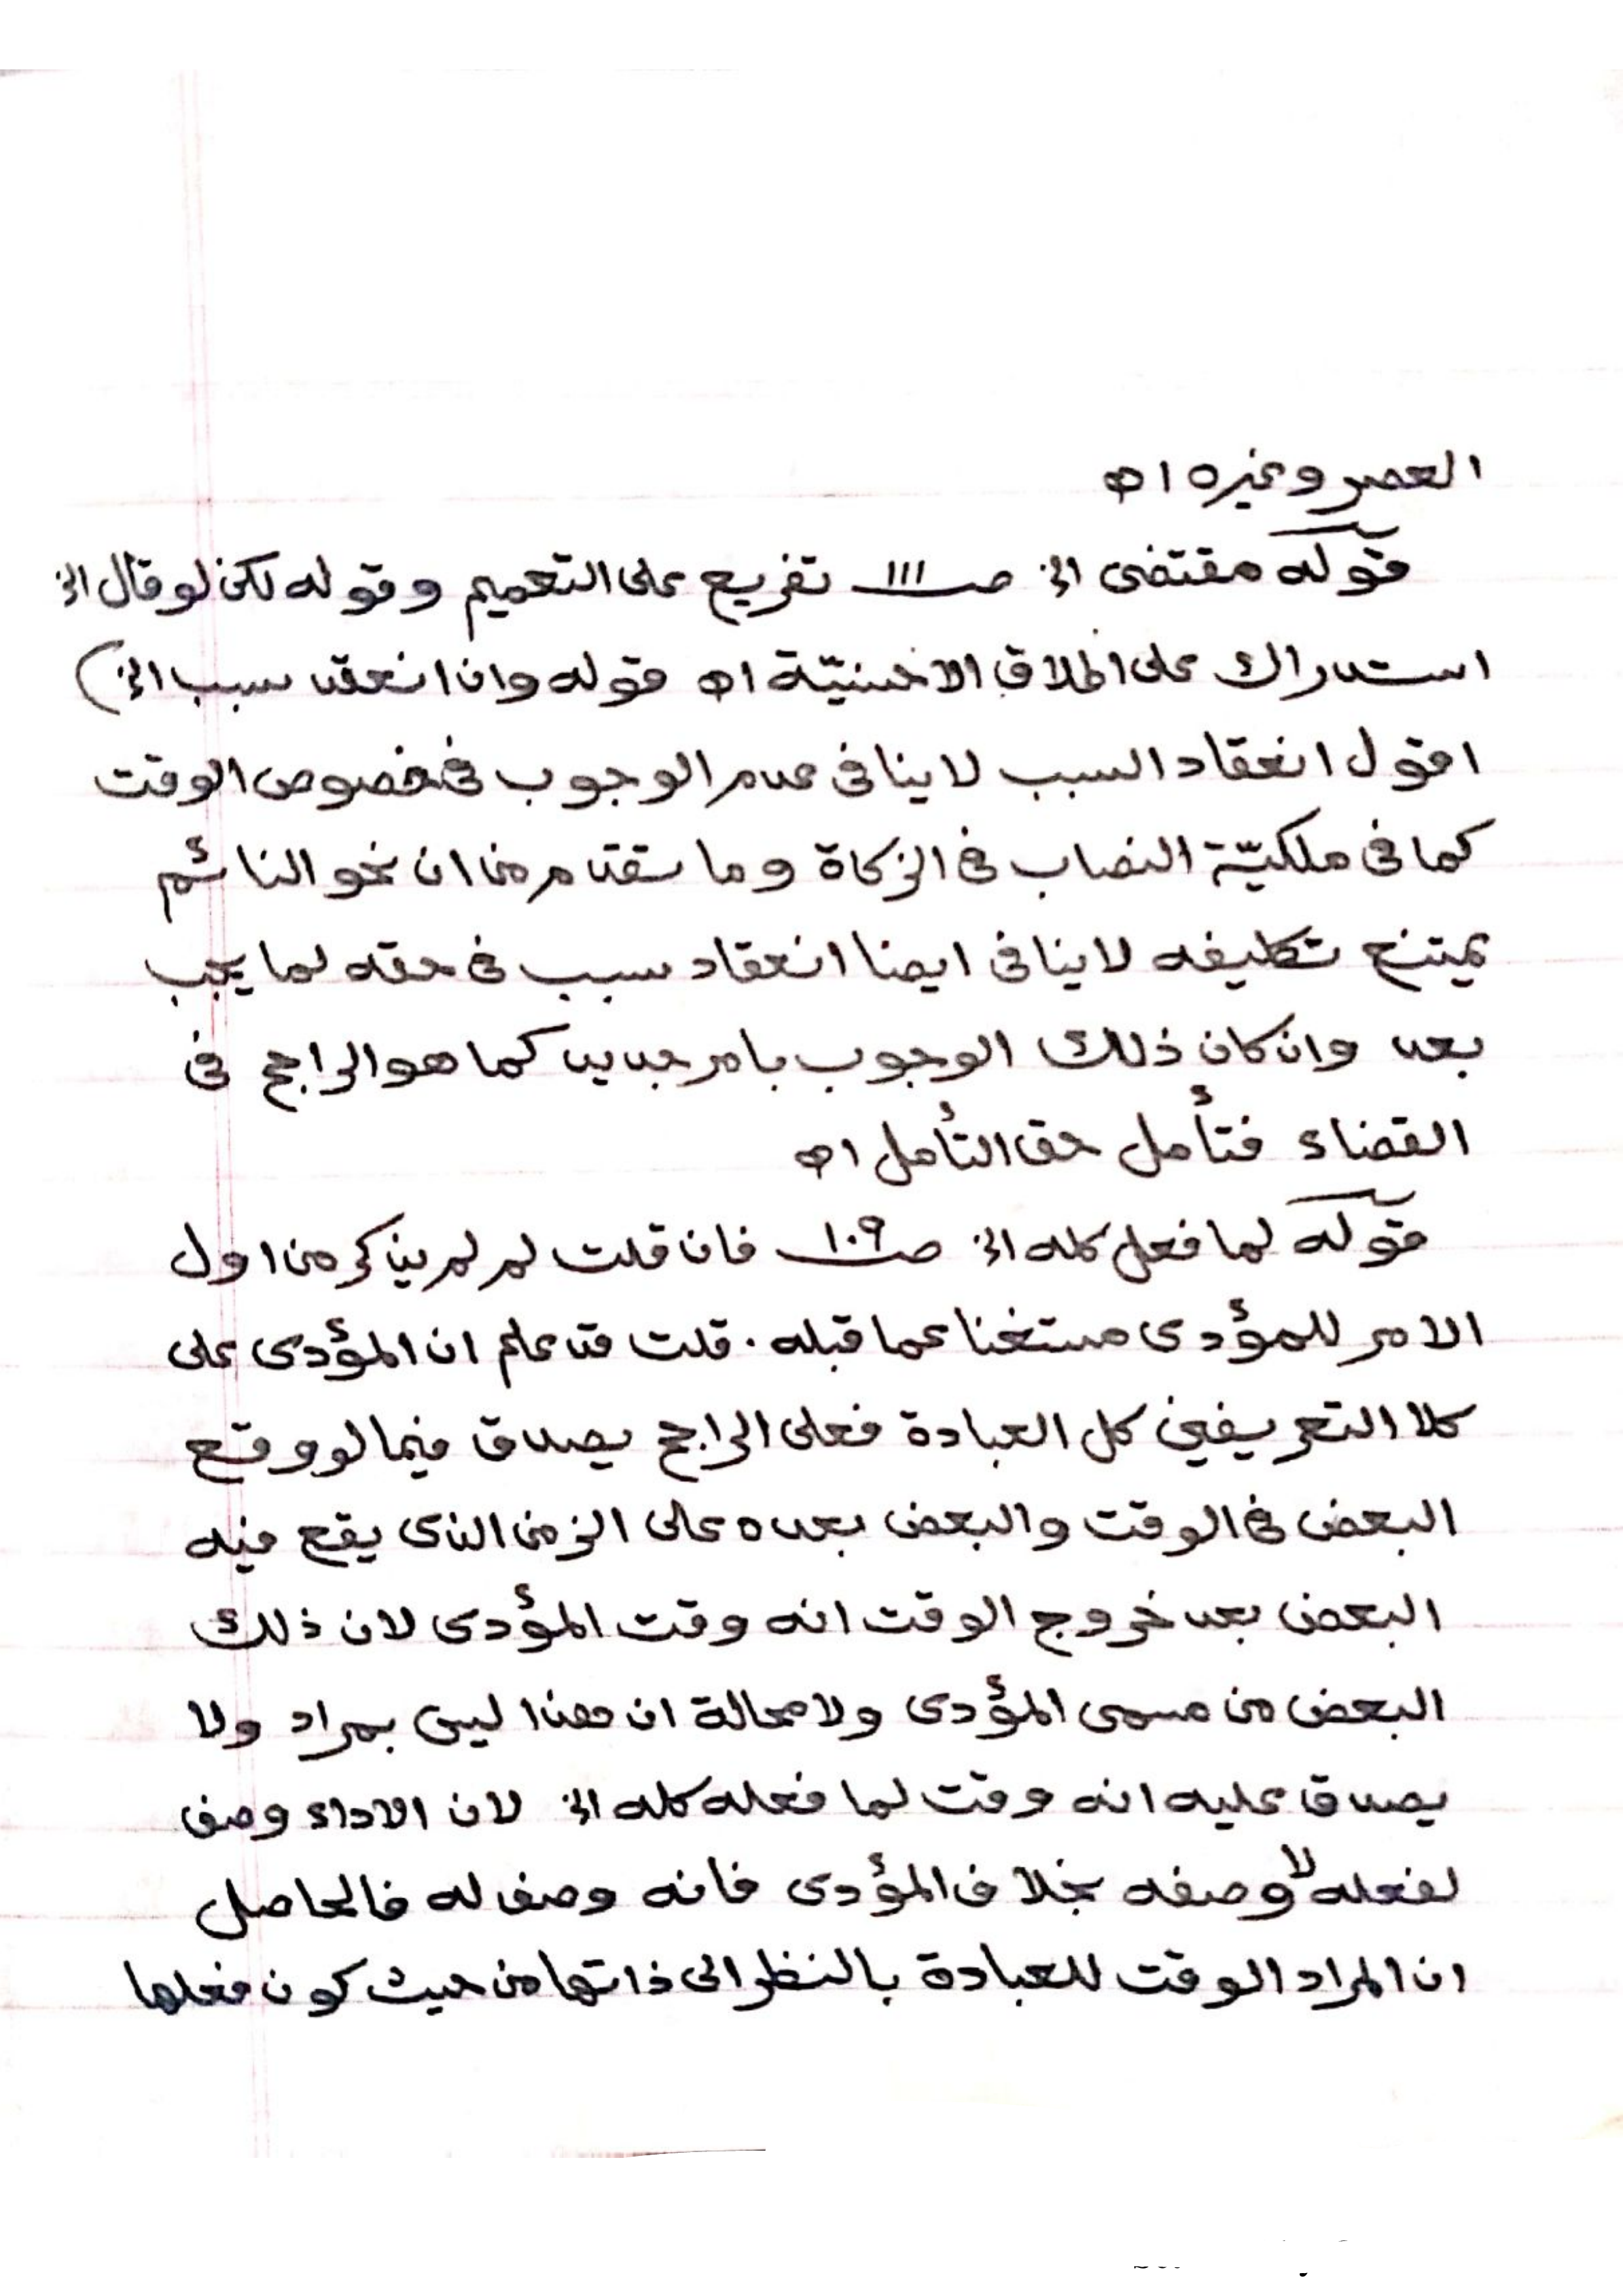 العصر وغيره اه
قوله مقتضى الخ صـ ١١١ تفريع على التعميم وقوله لكن لو قال الخ
استدراك على اطلاق الاخنيّة اه قوله وان انعقد سبب الخ)
اقول انعقاد السبب لا ينافى عدم الوجوب فى خصوص الوقت
كما فى ملكيّة النصاب فى الزكاة وما تقدم من ان نحو النائم
يمتنع تكليفه لا ينافى ايضا انعقاد سبب فى حقه لما يجب
بعد وان كان ذلك الوجوب بامر جديد كما هو الراجح فى
القضاء فتأمل حق التأمل اه
قوله لما فعل كله الخ صـ ١٠٩ فان قلت لم لم يذكر من اول
الامر للمؤدى مستغنا عما قبله . قلت قد علم ان المؤدى على
كلا التعريفين كل العبادة فعلى الراجح يصدق فيما لو وقع
البعض فى الوقت والبعض بعده على الزمن الذى يقع فيه
البعض بعد خروج الوقت انه وقت المؤدى لان ذلك
البعض من مسمى المؤدى ولا محالة ان هذا ليس بمراد ولا
يصدق عليه انه وقت لما فعله كله الخ لان الاداء وصف
لفعله لا وصفه بخلاف المؤدى فانه وصف له فالحاصل
ان المراد الوقت للعبادة بالنظر الى ذاتها من حيث كون فعلها